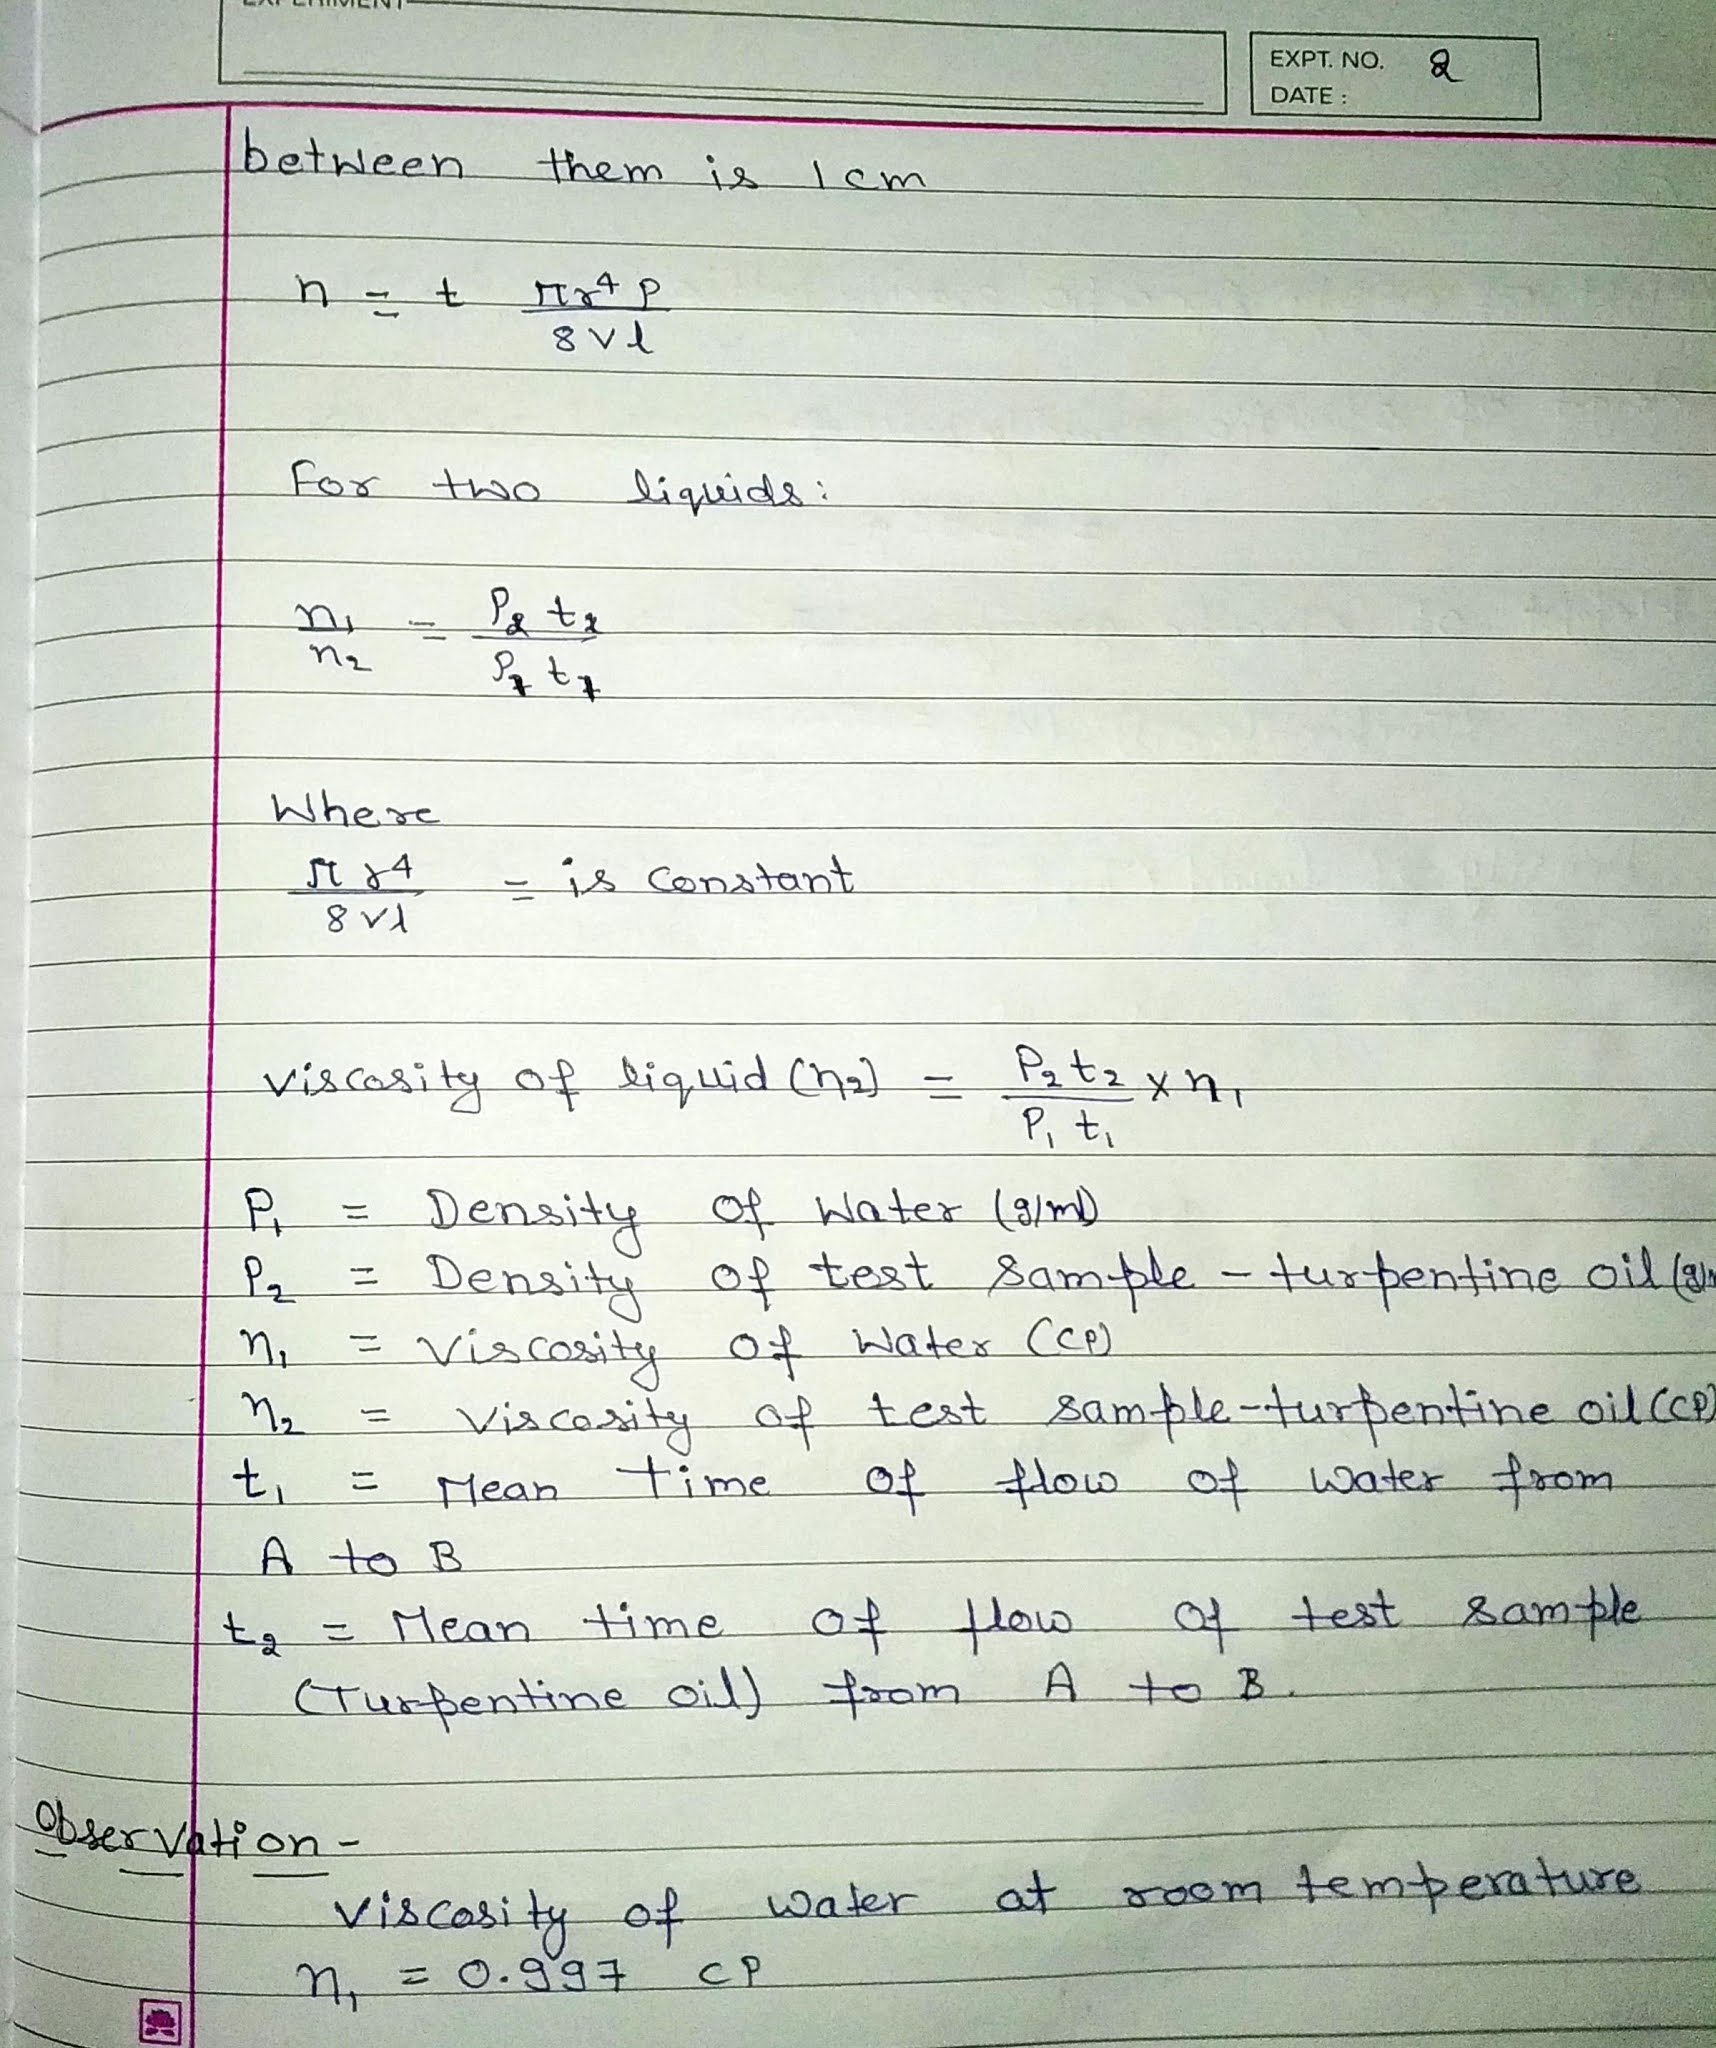 EXPERIMENT
EXPT. NO. 2
DATE :
between them is 1cm
n = t πr⁴ P
8 v l
For two liquids:
n₁ = P₂ t₂
n₂ P₁ t₁
Where
πr⁴ = is constant
8 v l
viscosity of liquid (n₂) = P₂ t₂ x n₁
P₁ t₁
P₁ = Density of Water (g/ml)
P₂ = Density of test sample - turpentine oil (g/m
n₁ = viscosity of Water (CP)
n₂ = viscosity of test sample-turpentine oil (CP)
t₁ = Mean time of flow of water from
A to B
t₂ = Mean time of flow of test sample
(Turpentine oil) from A to B.
Observation -
viscosity of water at room temperature
n₁ = 0.997 CP